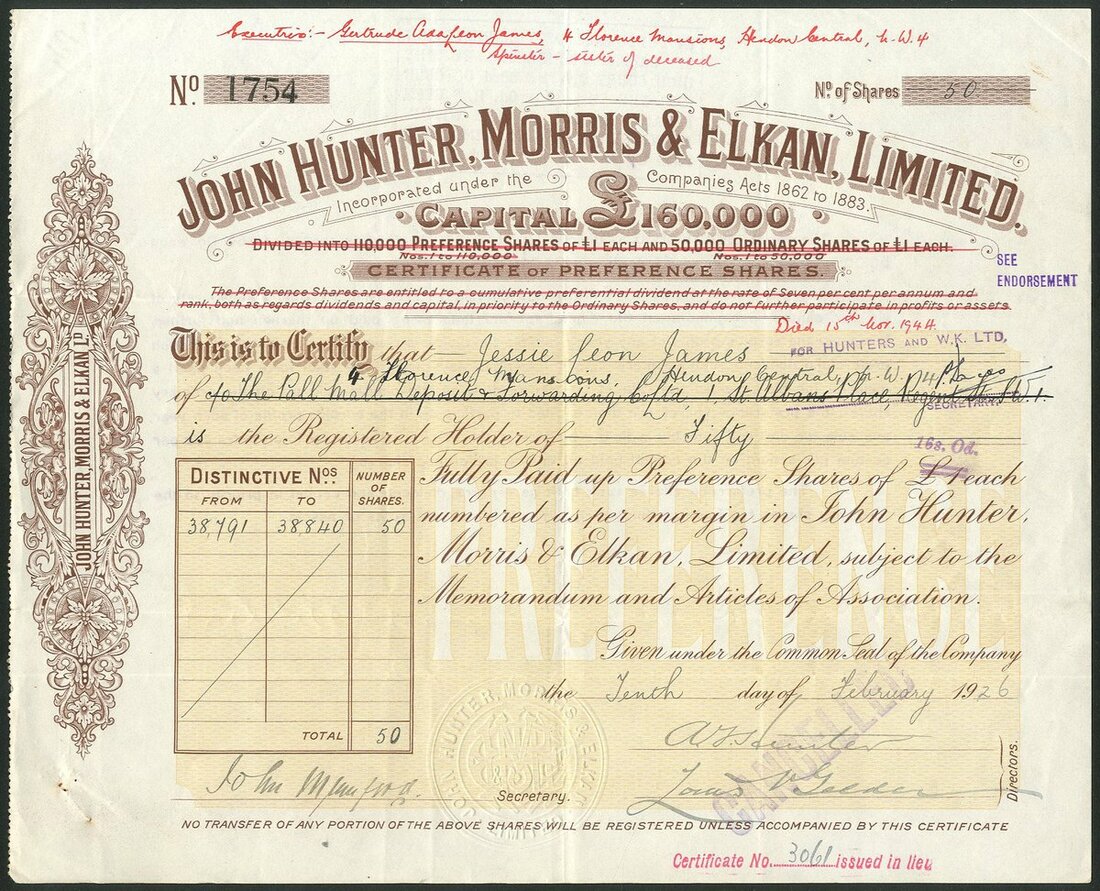 Executrix:- Gertrude Ada Leon James, 4 Florence Mansions, Hendon Central, N.W.4
Spinster - sister of deceased
No. 1754
No. of Shares 50
JOHN HUNTER, MORRIS & ELKAN, LIMITED.
Incorporated under the Companies Acts 1862 to 1883.
CAPITAL £160.000
DIVIDED INTO 110,000 PREFERENCE SHARES OF £1 EACH AND 50,000 ORDINARY SHARES OF £1 EACH.
Nos. 1 to 110,000 Nos. 1 to 50,000
CERTIFICATE OF PREFERENCE SHARES.
SEE
ENDORSEMENT
The Preference Shares are entitled to a cumulative preferential dividend at the rate of Seven per cent per annum and
rank, both as regards dividends and capital, in priority to the Ordinary Shares, and do not further participate in profits or assets
Died 15th Nov. 1944.
FOR HUNTERS AND W.K. LTD,
This is to Certify that Jessie Leon James
4 Florence Mansions, Hendon Central, N.W.4
of c/o The Pall Mall Deposit & Forwarding Co Ltd, 1 St Albans Place, Regent St, S.W.1.
SECRETARY.
is the Registered Holder of Fifty
16s. 0d.
Fully Paid up Preference Shares of £1 each
numbered as per margin in John Hunter,
Morris & Elkan, Limited, subject to the
Memorandum and Articles of Association.
PREFERENCE
DISTINCTIVE Nos. NUMBER OF SHARES.
FROM TO
38,791 38,840 50
TOTAL 50
Given under the Common Seal of the Company
the Tenth day of February 1926
CANCELLED
Directors.
John Mumford
Secretary.
JOHN HUNTER, MORRIS & ELKAN LD
NO TRANSFER OF ANY PORTION OF THE ABOVE SHARES WILL BE REGISTERED UNLESS ACCOMPANIED BY THIS CERTIFICATE
Certificate No. 3061 issued in lieu